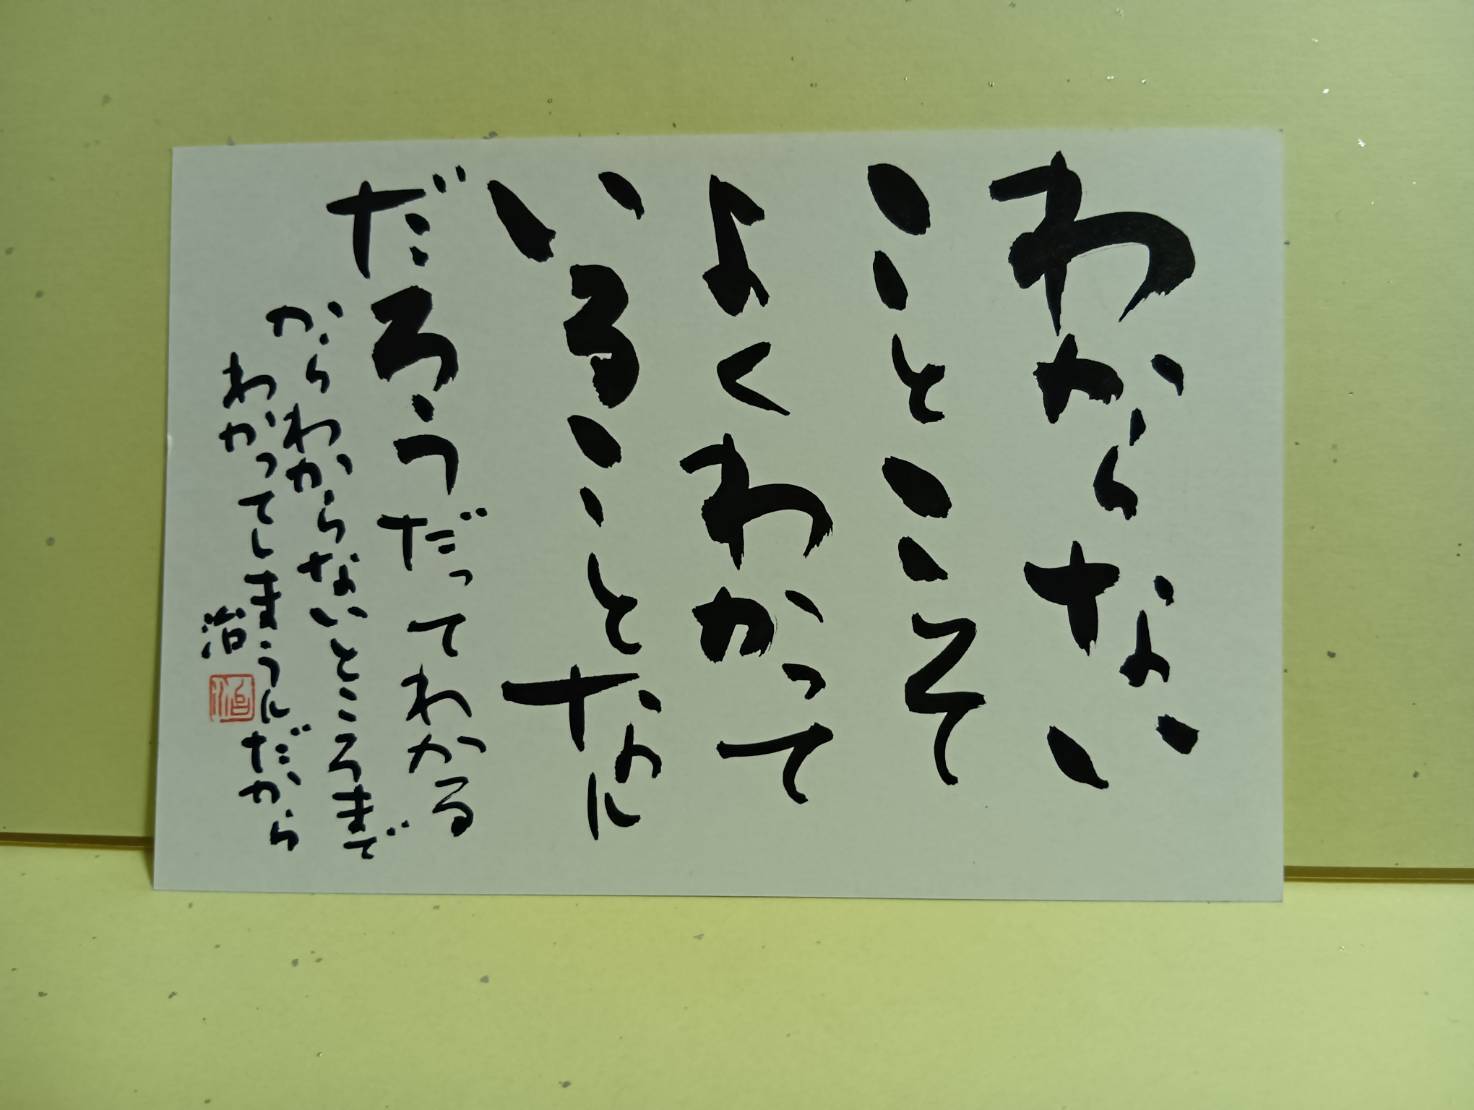 わからない
ことこそ
よくわかって
いることなに
だろうだってわかる
からわからないところまで
わかってしまうんだから
治
治